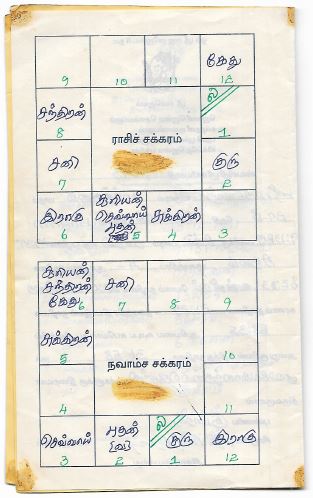 கேது
9 10 11 12
சந்திரன் ல
8 1
ராசிச் சக்கரம்
சனி குரு
7 2
இராகு சூரியன் சுக்கிரன்
செவ்வாய்
புதன்
6 5 4 3
சூரியன் சனி
சந்திரன்
கேது 6 7 8 9
சுக்கிரன்
5 10
நவாம்ச சக்கரம்
4 11
செவ்வாய் புதன் ல குரு இராகு
(வ)
3 2 1 12